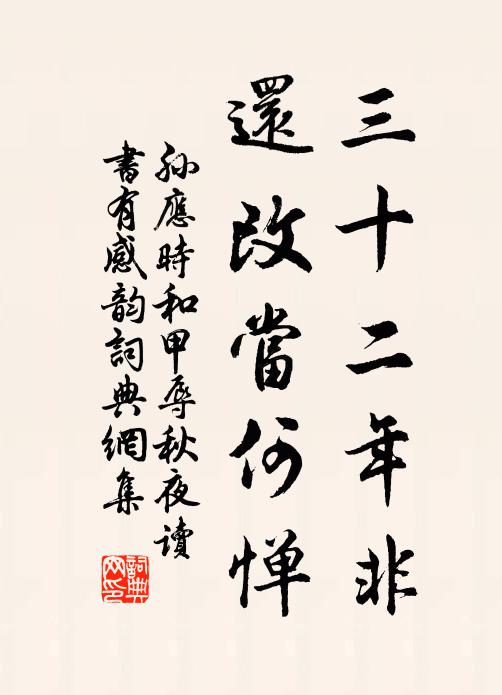 三十二年非
還改當何惮
孙應時和甲辱秋夜讀
書有感韵詞典網集
詞典
网印